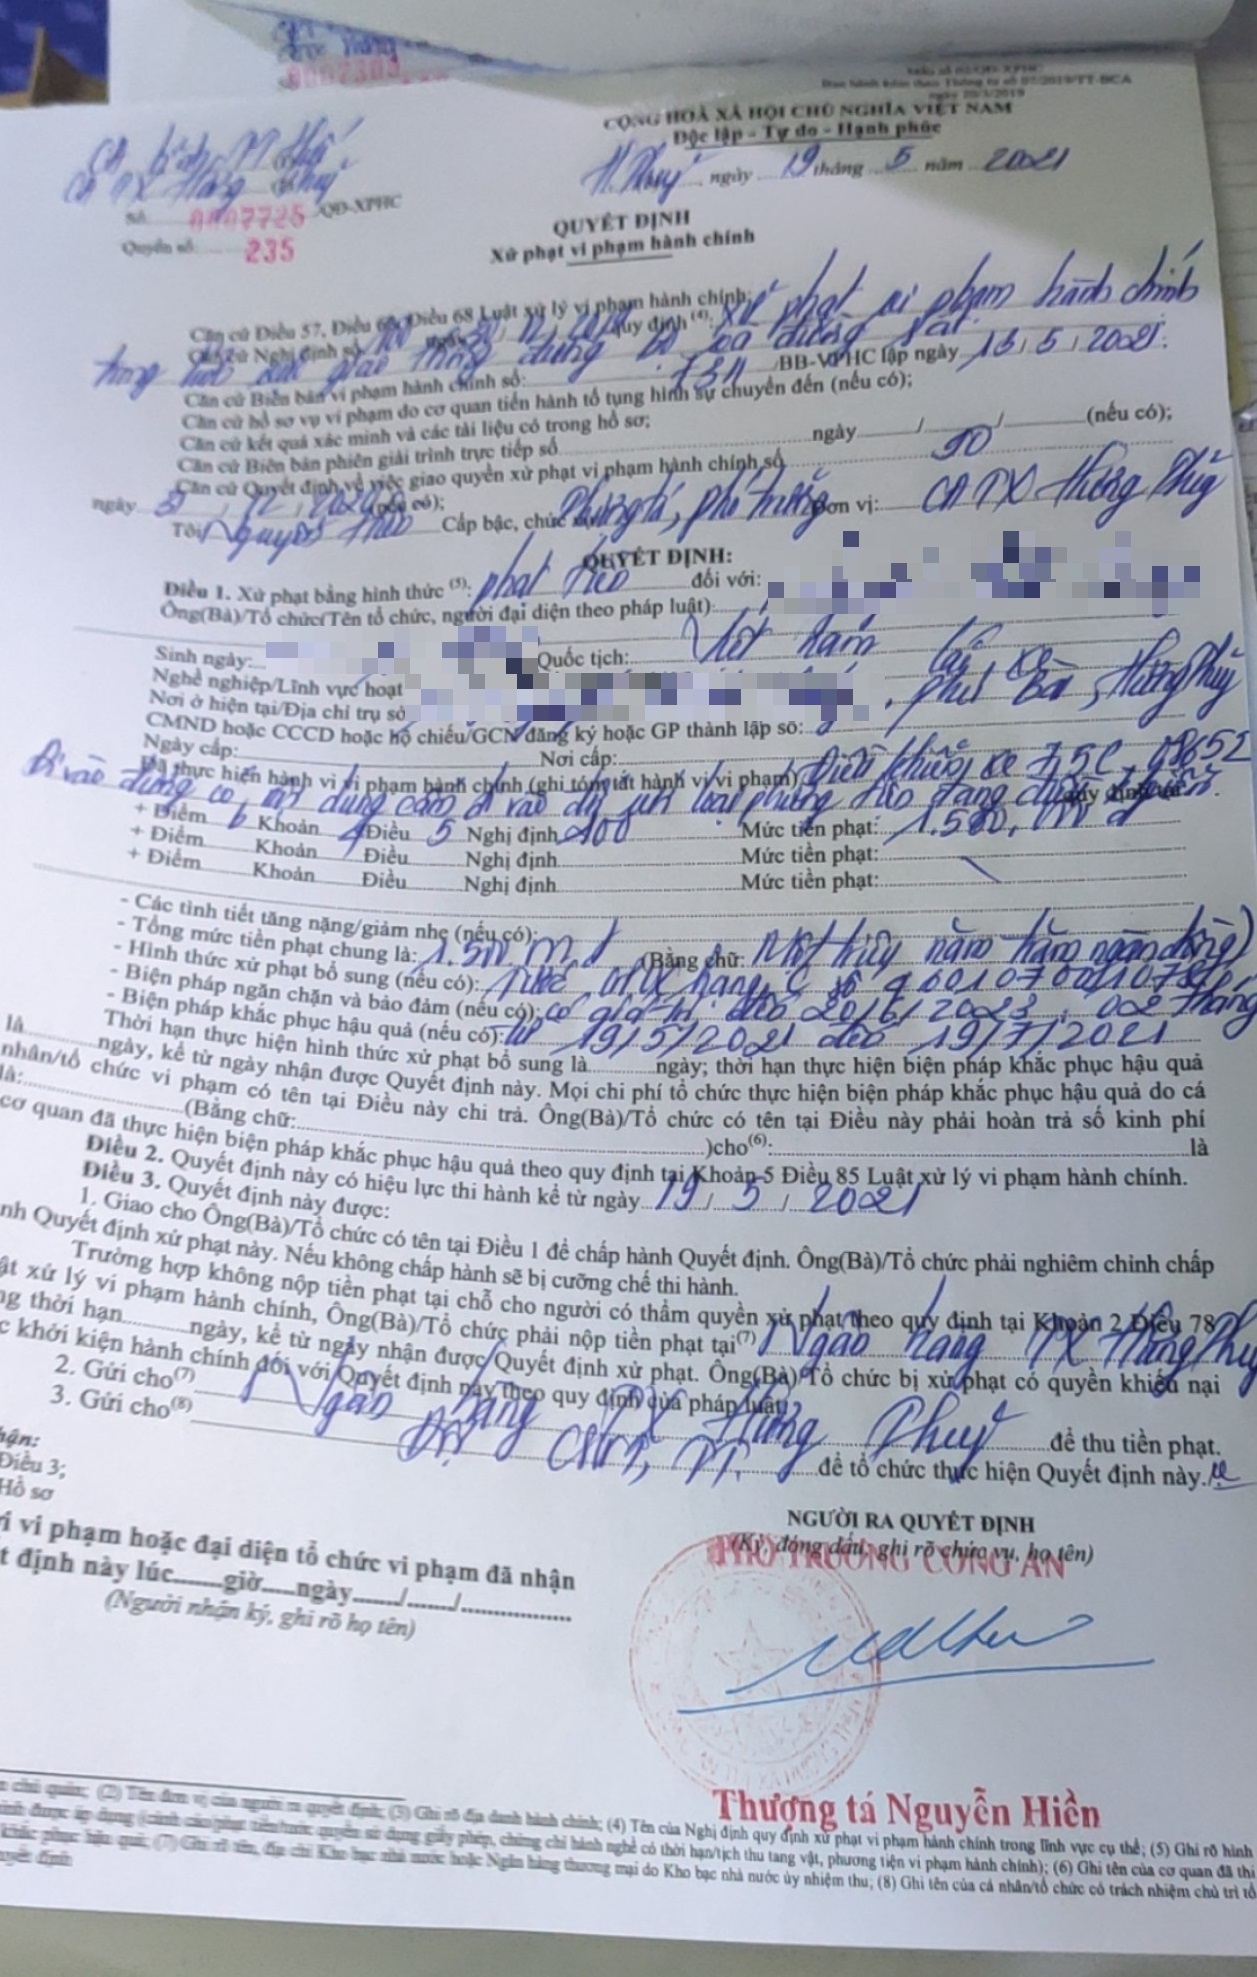 ngày 20/3/2019
CỘNG HOÀ XÃ HỘI CHỦ NGHĨA VIỆT NAM
Độc lập - Tự do - Hạnh phúc
CA tỉnh TT Huế
CA TX Hương Thuỷ
H.Thuỷ, ngày 19 tháng 5 năm 2021
Số 0007725 /QĐ-XPHC
Quyển số: 235
QUYẾT ĐỊNH
Xử phạt vi phạm hành chính
Căn cứ Điều 57, Điều 68 Luật xử lý vi phạm hành chính;
Căn cứ Nghị định số 100 quy định (4): Xử phạt vi phạm hành chính
trong lĩnh vực giao thông đường bộ và đường sắt
Căn cứ Biên bản vi phạm hành chính số: /BB-VPHC lập ngày 16/5/2021;
Căn cứ hồ sơ vụ vi phạm do cơ quan tiến hành tố tụng hình sự chuyển đến (nếu có);
Căn cứ kết quả xác minh và các tài liệu có trong hồ sơ;
Căn cứ Biên bản phiên giải trình trực tiếp số ngày / / (nếu có);
Căn cứ Quyết định về việc giao quyền xử phạt vi phạm hành chính số 90
ngày (nếu có);
Tôi: Nguyễn Hiền Cấp bậc, chức vụ: Thượng tá, phó trưởng Đơn vị: CA TX Hương Thủy
QUYẾT ĐỊNH:
Điều 1. Xử phạt bằng hình thức (5): phạt tiền đối với:
Ông(Bà)/Tổ chức(Tên tổ chức, người đại diện theo pháp luật):
Sinh ngày: Quốc tịch: Việt Nam
Nghề nghiệp/Lĩnh vực hoạt lái xe
Nơi ở hiện tại/Địa chỉ trụ sở , Phú Bài, Hương Thủy
CMND hoặc CCCD hoặc hộ chiếu/GCN đăng ký hoặc GP thành lập số:
Ngày cấp: Nơi cấp:
Đã thực hiện hành vi vi phạm hành chính (ghi tóm tắt hành vi vi phạm) Điều khiển xe 75C
Đi vào đường có nội dung cấm đi vào đối với loại phương tiện đang điều khiển quy định tại
+ Điểm b Khoản 4 Điều 5 Nghị định 100 Mức tiền phạt: 1.500.000 đ
+ Điểm Khoản Điều Nghị định Mức tiền phạt:
+ Điểm Khoản Điều Nghị định Mức tiền phạt:
- Các tình tiết tăng nặng/giảm nhẹ (nếu có):
- Tổng mức tiền phạt chung là: (Bằng chữ: Một triệu năm trăm ngàn đồng)
- Hình thức xử phạt bổ sung (nếu có): Tước GPLX hạng C số
- Biện pháp ngăn chặn và bảo đảm (nếu có): có giá trị đến 20/6/2023, 02 tháng
- Biện pháp khắc phục hậu quả (nếu có): từ 19/5/2021 đến 19/7/2021
Thời hạn thực hiện hình thức xử phạt bổ sung là ngày; thời hạn thực hiện biện pháp khắc phục hậu quả
là ngày, kể từ ngày nhận được Quyết định này. Mọi chi phí tổ chức thực hiện biện pháp khắc phục hậu quả do cá
nhân/tổ chức vi phạm có tên tại Điều này chi trả. Ông(Bà)/Tổ chức có tên tại Điều này phải hoàn trả số kinh phí
là: (Bằng chữ: )cho(6): là
cơ quan đã thực hiện biện pháp khắc phục hậu quả theo quy định tại Khoản 5 Điều 85 Luật xử lý vi phạm hành chính.
Điều 2. Quyết định này có hiệu lực thi hành kể từ ngày 19/5/2021
Điều 3. Quyết định này được:
1. Giao cho Ông(Bà)/Tổ chức có tên tại Điều 1 để chấp hành Quyết định. Ông(Bà)/Tổ chức phải nghiêm chỉnh chấp
nh Quyết định xử phạt này. Nếu không chấp hành sẽ bị cưỡng chế thi hành.
Trường hợp không nộp tiền phạt tại chỗ cho người có thẩm quyền xử phạt theo quy định tại Khoản 2 Điều 78
ật xử lý vi phạm hành chính, Ông(Bà)/Tổ chức phải nộp tiền phạt tại(7) Ngân hàng TX Hương Thủy
ng thời hạn ngày, kể từ ngày nhận được Quyết định xử phạt. Ông(Bà)/Tổ chức bị xử phạt có quyền khiếu nại
c khởi kiện hành chính đối với Quyết định này theo quy định của pháp luật.
2. Gửi cho(7) Ngân hàng TX Hương Thuỷ để thu tiền phạt.
3. Gửi cho(8) Đội CSGT, TT để tổ chức thực hiện Quyết định này.
hận:
Điều 3;
Hồ sơ
NGƯỜI RA QUYẾT ĐỊNH
(Ký, đóng dấu, ghi rõ chức vụ, họ tên)
PHÓ TRƯỞNG CÔNG AN
i vi phạm hoặc đại diện tổ chức vi phạm đã nhận
t định này lúc giờ ngày / /
(Người nhận ký, ghi rõ họ tên)
Thượng tá Nguyễn Hiền
n chủ quản; (2) Tên đơn vị của người ra quyết định; (3) Ghi rõ địa danh hành chính; (4) Tên của Nghị định quy định xử phạt vi phạm hành chính trong lĩnh vực cụ thể; (5) Ghi rõ hình
quyền sử dụng giấy phép, chứng chỉ hành nghề có thời hạn/tịch thu tang vật, phương tiện vi phạm hành chính); (6) Ghi tên của cơ quan đã thi
khắc phục hậu quả; (7) Ghi rõ tên, địa chỉ Kho bạc nhà nước hoặc Ngân hàng thương mại do Kho bạc nhà nước ủy nhiệm thu; (8) Ghi tên của cá nhân/tổ chức có trách nhiệm chủ trì tổ
uyết định